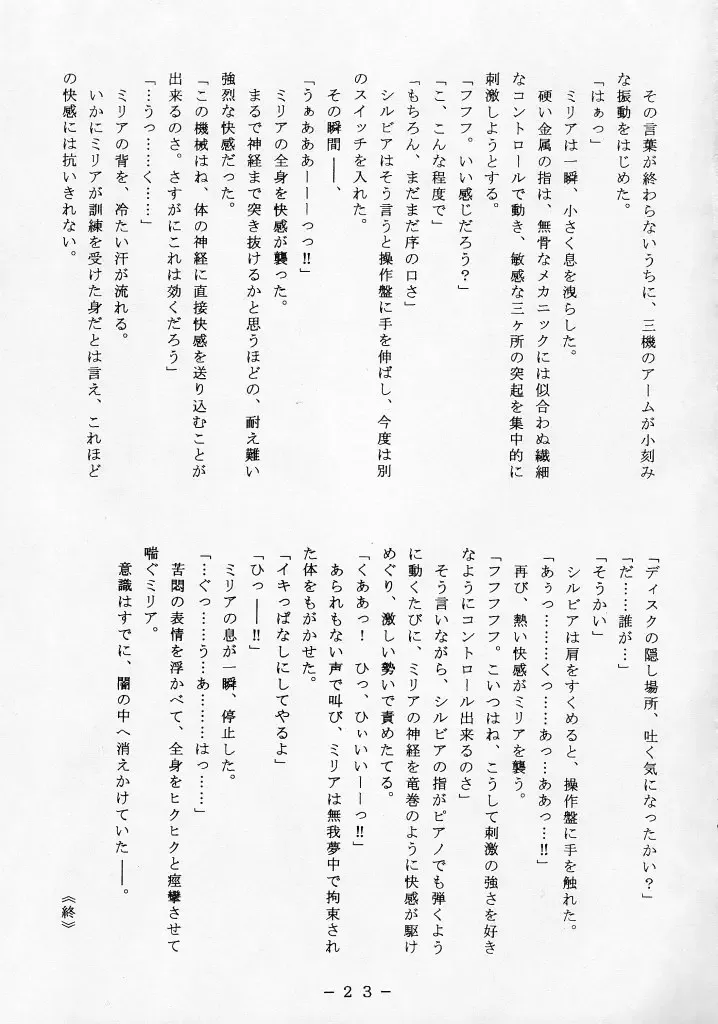 その言葉が終わらないうちに、三機のアームが小刻み
な振動をはじめた。
「はぁっ」
ミリアは一瞬、小さく息を洩らした。
硬い金属の指は、無骨なメカニックには似合わぬ繊細
なコントロールで動き、敏感な三ヶ所の突起を集中的に
刺激しようとする。
「フフフ。いい感じだろう？」
「こ、こんな程度で」
「もちろん、まだまだ序の口さ」
シルビアはそう言うと操作盤に手を伸ばし、今度は別
のスイッチを入れた。
その瞬間――、
「うぁあああーーーっっ!!」
ミリアの全身を快感が襲った。
まるで神経まで突き抜けるかと思うほどの、耐え難い
強烈な快感だった。
「この機械はね、体の神経に直接快感を送り込むことが
出来るのさ。さすがにこれは効くだろう」
「…うっ……く……」
ミリアの背を、冷たい汗が流れる。
いかにミリアが訓練を受けた身だとは言え、これほど
の快感には抗いきれない。
「ディスクの隠し場所、吐く気になったかい？」
「だ……誰が…」
「そうかい」
シルビアは肩をすくめると、操作盤に手を触れた。
「あぅっ………くっ……あっ…ああっ…!!」
再び、熱い快感がミリアを襲う。
「フフフフフ。こいつはね、こうして刺激の強さを好き
なようにコントロール出来るのさ」
そう言いながら、シルビアの指がピアノでも弾くよう
に動くたびに、ミリアの神経を竜巻のように快感が駆け
めぐり、激しい勢いで責めたてる。
「くああっ！　ひっ、ひぃいいーーっ!!」
あられもない声で叫び、ミリアは無我夢中で拘束され
た体をもがかせた。
「イキっぱなしにしてやるよ」
「ひっ――!!」
ミリアの息が一瞬、停止した。
「…ぐっ……う…あ………はっ……」
苦悶の表情を浮かべて、全身をヒクヒクと痙攣させて
喘ぐミリア。
意識はすでに、闇の中へ消えかけていた――。
《終》
－２３－